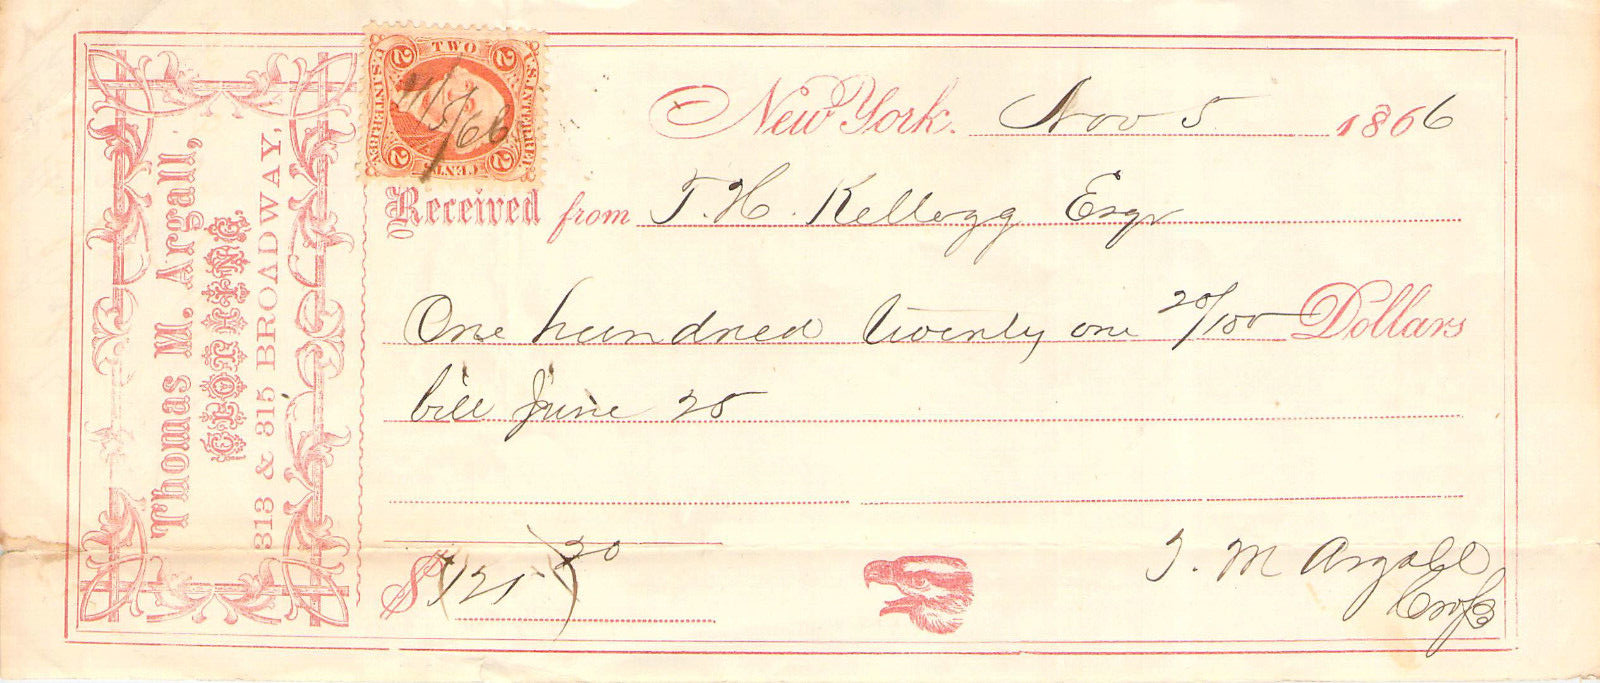 Thomas M. Argall,
CLOTHING.
313 & 315 BROADWAY,
U.S. INTER. REV.
TWO
CENTS
U.S. INTER. REV.
2
2
2
2
11/5/66
New York. Nov 5 1866
Received from T. H. Kellogg Esqr
One hundred twenty one 20/100 Dollars
bill June 25
$ 121 20
T. M Argall